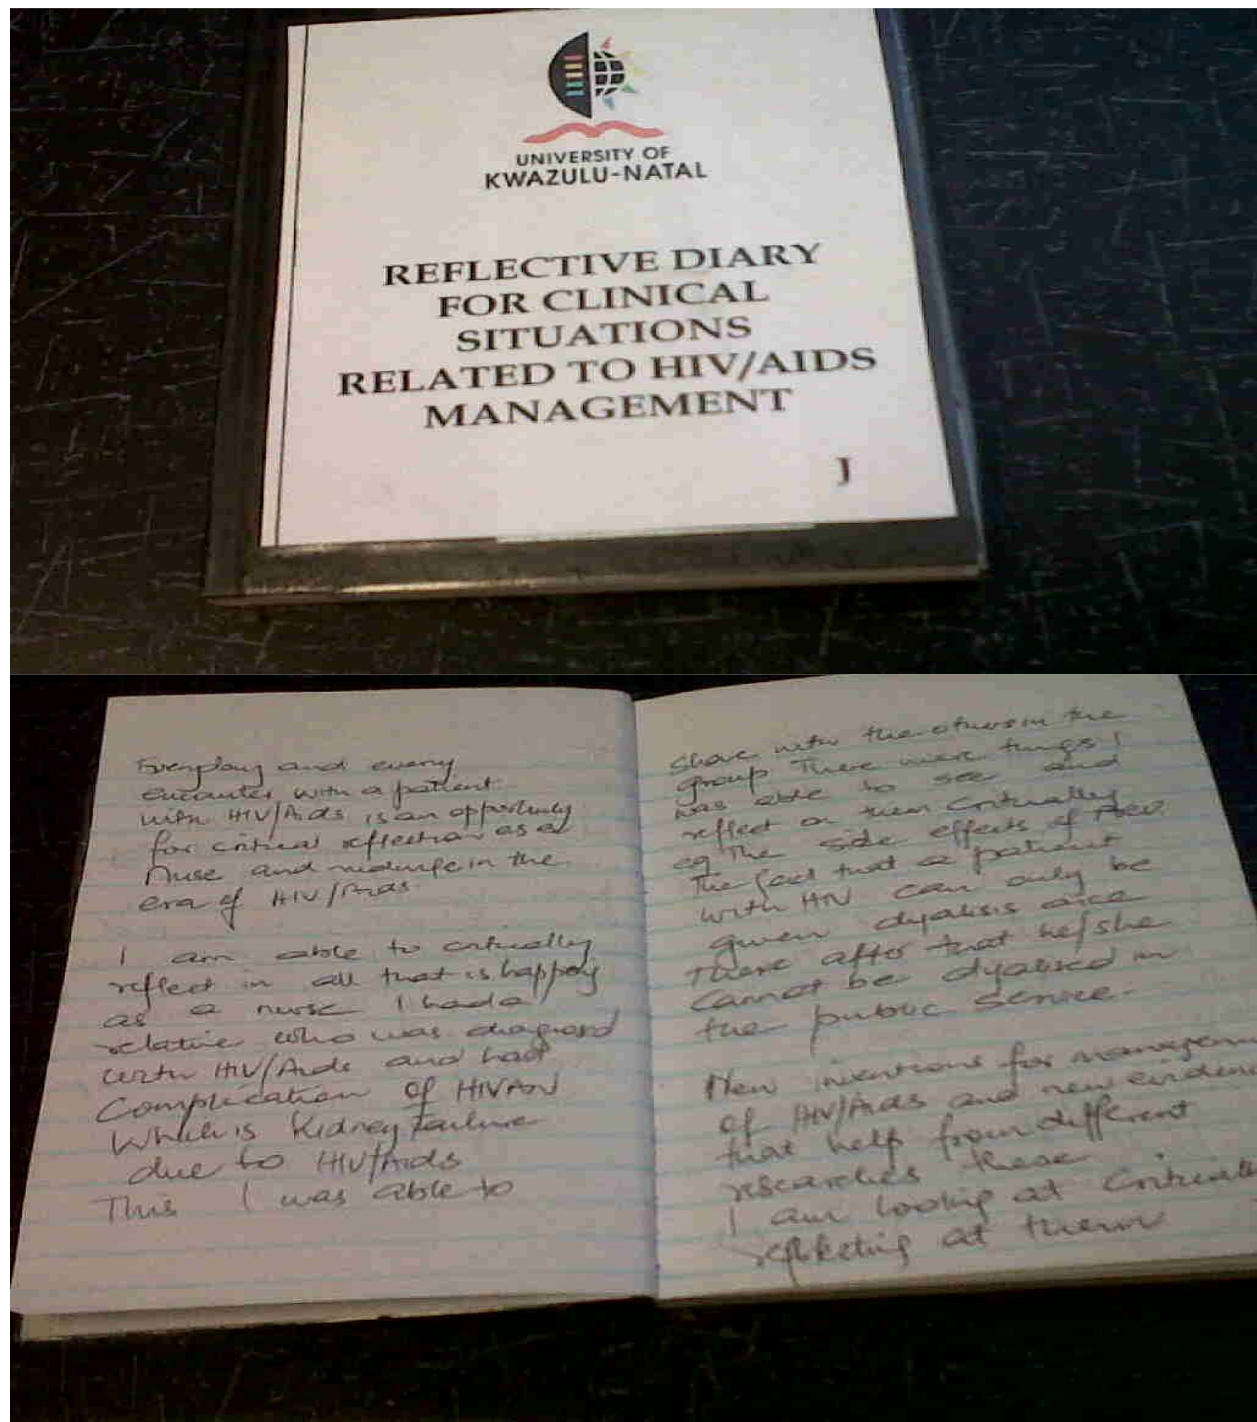 UNIVERSITY OF
KWAZULU-NATAL
REFLECTIVE DIARY
FOR CLINICAL
SITUATIONS
RELATED TO HIV/AIDS
MANAGEMENT
J
Everyday and every
encounter with a patient
with HIV/Aids is an opportunity
for critical reflection as a
Nurse and midwife in the
era of HIV/Aids.
I am able to critically
reflect in all that is happeng
as a nurse I had a
relative who was diagnosed
with HIV/Aids and had
Complication of HIVAN
Which is Kidney Failure
due to HIV/Aids
This I was able to
Share with the others in the
group There were things I
was able to see and
reflect on them Critically
eg The side effects of
The fact that a patient
with HIV can only be
given dyalisis once
There after that he/she
Cannot be dyalised in
the public Service.
New inventions for managem
of HIV/Aids and new eviden
that help from different
researches these
I am looking at Critically
at them